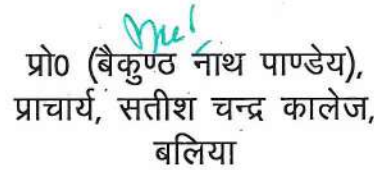 प्रो0 (बैकुण्ठ नाथ पाण्डेय),
प्राचार्य, सतीश चन्द्र कालेज,
बलिया